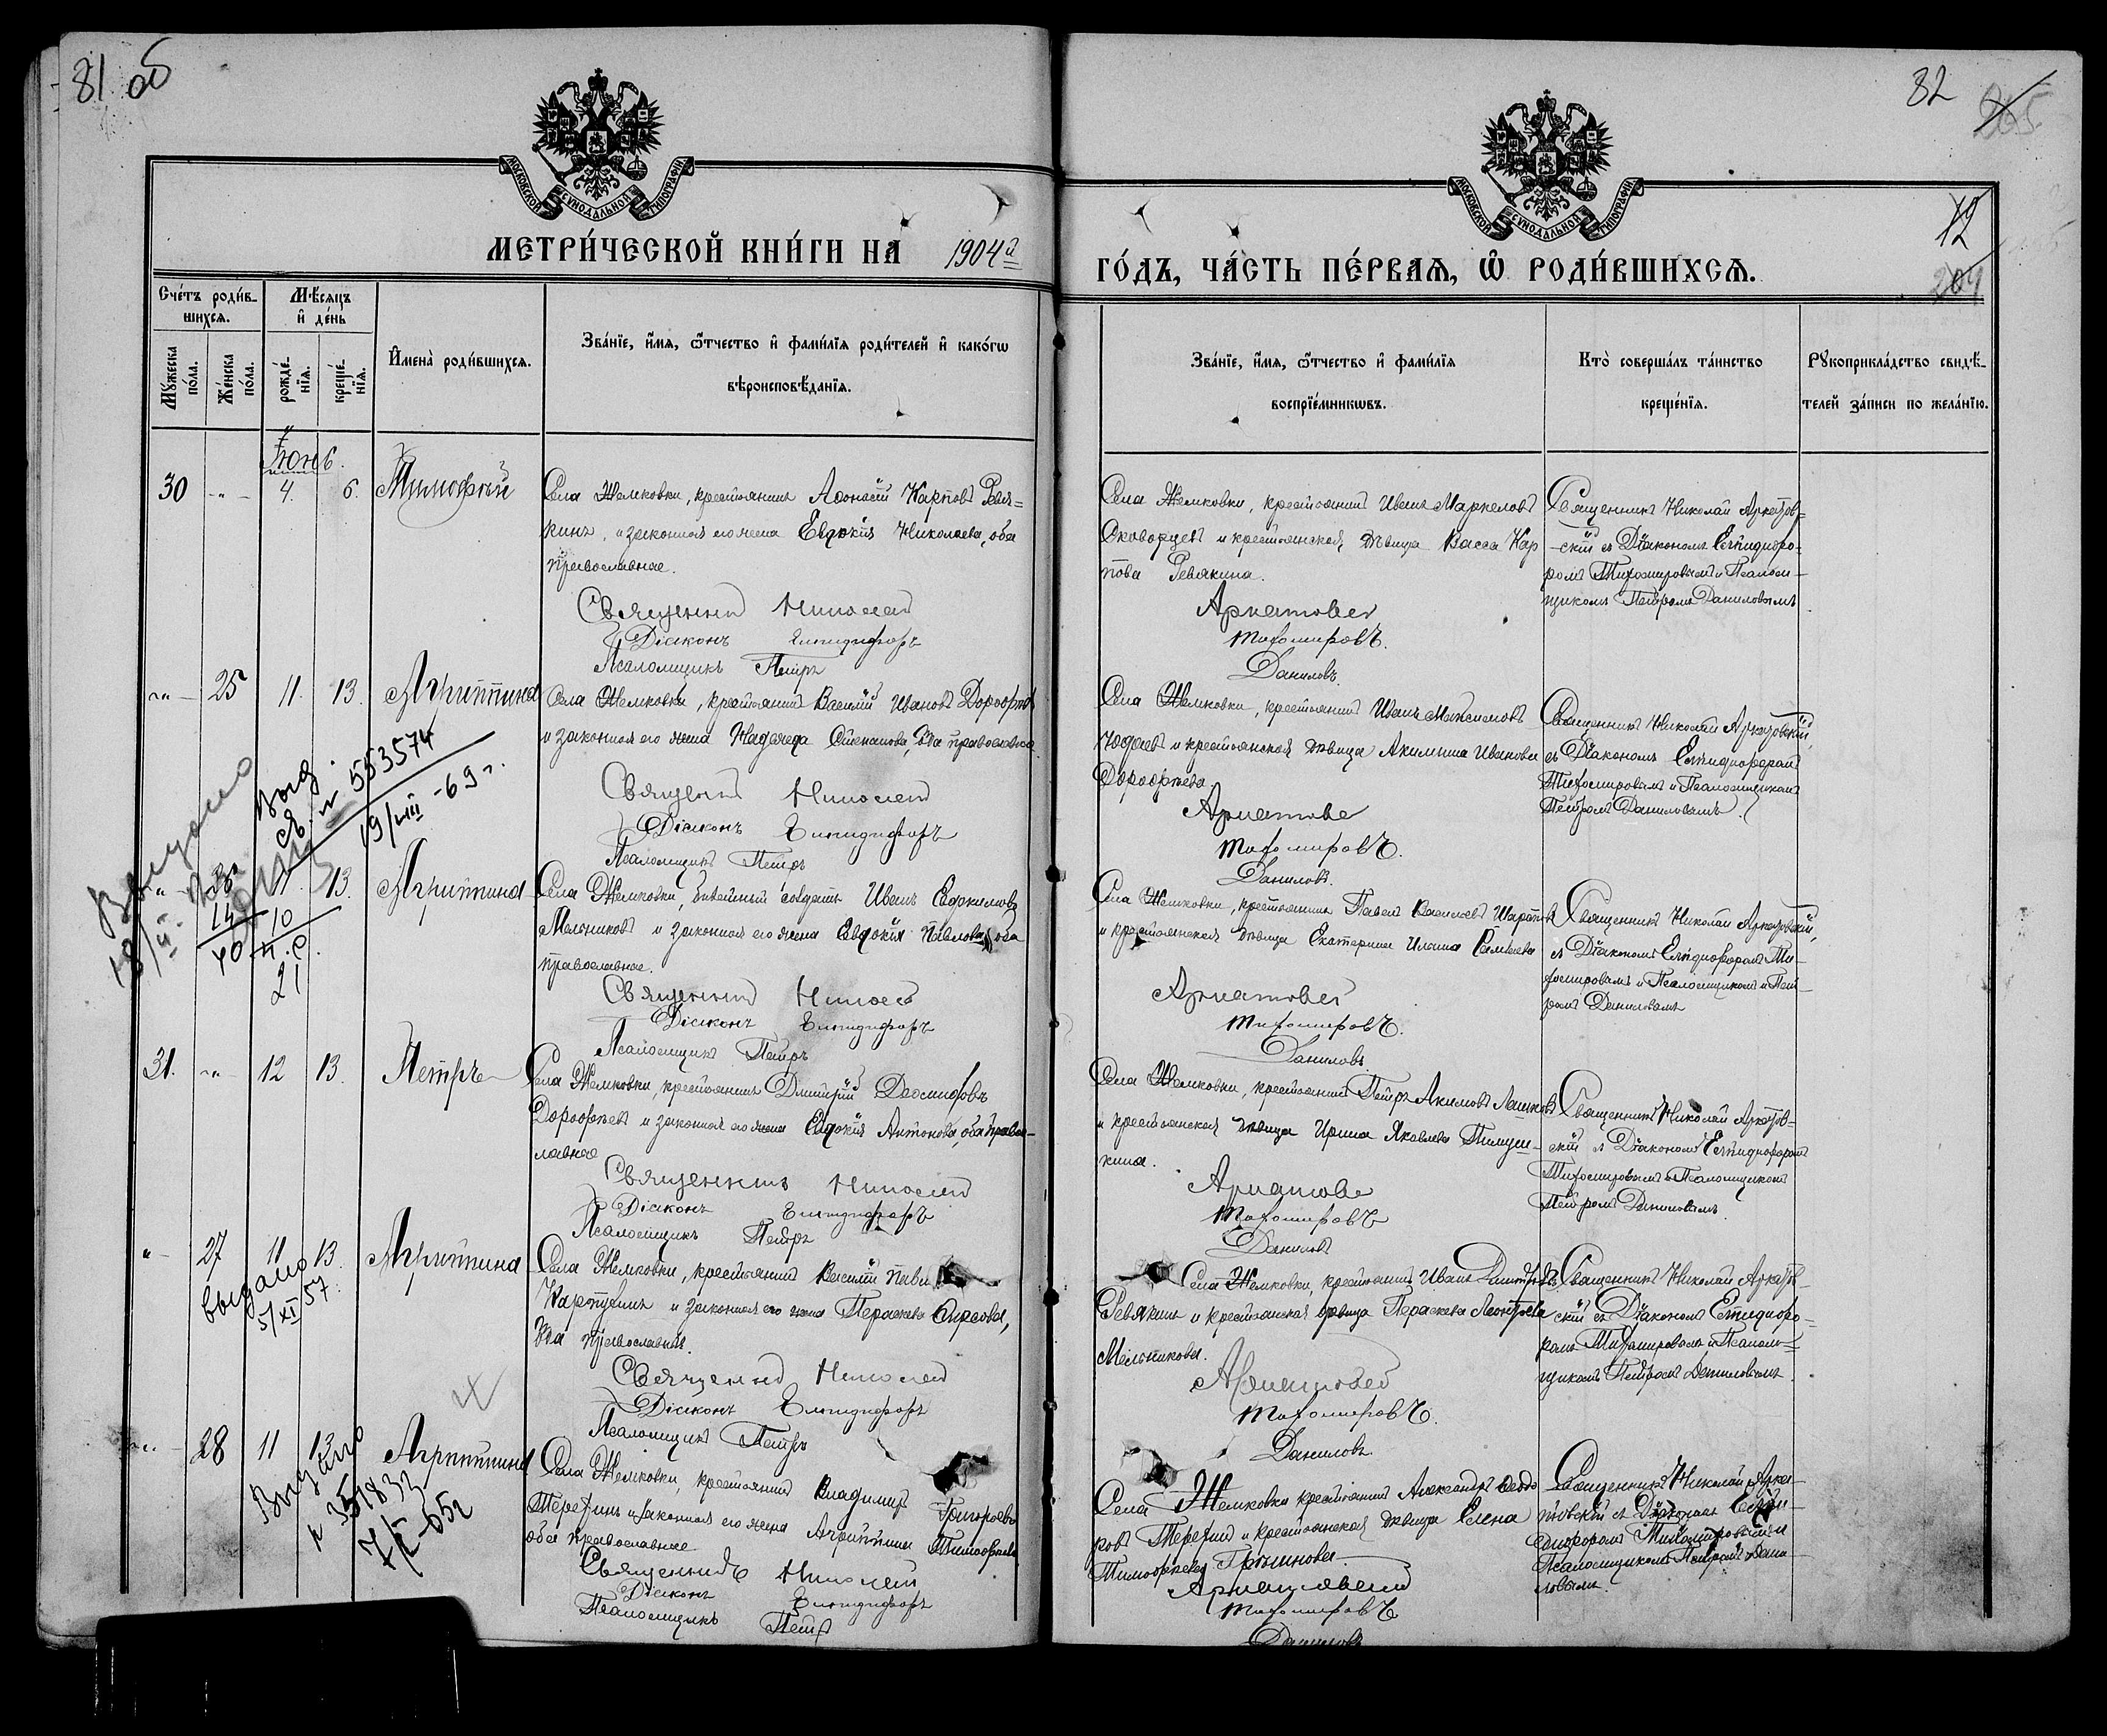 81 об
МОСКОВСКОЙ СѴНОДАЛЬНОЙ ТИПОГРАФИ
МЕТРИ́ЧЕСКОЙ КНИ́ГИ НА 1904й
Сче́тъ роди́в-
шихсѧ.
Мѣ́сѧцъ
и҆ де́нь
Мꙋ́жеска
по́ла.
Же́нска
по́ла.
рожде́-
нїѧ.
креще́-
нїѧ.
И҆мена̀ роди́вшихсѧ.
Зва́нїе, и҆́мѧ, ѻ҆́тчество и҆ фами́лїѧ роди́телей и҆ како́гѡ
вѣроисповѣ́данїѧ.
Іюнь.
30 -"- 4. 6. Тимофей
Села Жемковки, крестьянинъ Аѳонасiй Карповъ Ревя=
кинъ, и законная его жена Евдокія Николаева, оба
православные.
Священникъ Николай
Діаконъ Елпидифоръ
Псаломщикъ Петръ
-"- 25 11. 13. Агриппина
Села Жемковки, крестьянинъ Василій Ивановъ Дороѳѣевъ
и законная его жена Надежда Степанова, оба православные
Священникъ Николай
Діаконъ Елпидифоръ
Псаломщикъ Петръ
Выдано
18/II
Выд.
св. № 553574
19/VIII-69 г.
-"- 26 11. 13. Агриппина
14 10
40 н.с.
21
Села Жемковки, билетный солдатъ Иванъ Евдокимовъ
Мельниковъ и законная его жена Евдокія Павлова, оба
православные.
Священникъ Николай
Діаконъ Елпидифоръ
Псаломщикъ Петръ
31. -"- 12 13. Петръ
Села Жемковки, крестьянинъ Димитрій
Дороѳѣевъ и законная его жена Евдокія Антонова, оба право-
славные
Священникъ Николай
Діаконъ Елпидифоръ
Псаломщикъ Петръ
"- 27 11 13. Агриппина
выдано
5/XI 57
Села Жемковки, крестьянинъ Василій Павл
и законная его жена Параскева
оба православные.
Священникъ Николай
Діаконъ Елпидифоръ
Псаломщикъ Петръ
-"- 28 11 13 Агриппина
Выдано
№ 351832
7/X-65г
Села Жемковки, крестьянинъ Владимиръ Григорьевъ
Терехинъ и законная его жена Агриппина Тимоѳеева
оба православные
Священникъ Николай
Діаконъ Елпидифоръ
Псаломщикъ Петръ
82
265
МОСКОВСКОЙ СѴНОДАЛЬНОЙ ТИПОГРАФИ
12
204
ГО́ДЪ, ЧА́СТЬ ПЕ́РВАѦ, Ѡ҆ РОДИ́ВШИХСѦ.
Зва́нїе, и҆́мѧ, ѻ҆́тчество и҆ фами́лїѧ
воспрїе́мникѡвъ.
Кто̀ соверша́лъ та́инство
креще́нїѧ.
Рꙋкоприкла́дство свидѣ́-
телей за́писи по жела́нїю.
Села Жемковки, крестьянинъ Иванъ Маркеловъ
Сковорцевъ и крестьянская дѣвица Васса Кар
пова Ревякина.
Аркатовскій
Тихомировъ.
Даниловъ.
Священникъ Николай Аркатов=
-скій съ Діакономъ Елпидифо-
ромъ Тихомировымъ и Псалом-
щикомъ Петромъ Даниловымъ
Села Жемковки, крестьянинъ Иванъ Максимовъ
и крестьянская дѣвица Акилина Иванова
Дороѳѣева.
Аркатовскій
Тихомировъ.
Даниловъ.
Священникъ Николай Аркатовскій,
съ Діакономъ Елпидифоромъ
Тихомировымъ и Псаломщикомъ
Петромъ Даниловымъ.
Села Жемковки, крестьянинъ Павелъ Васильевъ
и крестьянская дѣвица Екатерина Ильина
Аркатовскій
Тихомировъ.
Даниловъ.
Священникъ Николай Аркатовскій,
съ Діакономъ Елпидифоромъ Ти-
хомировымъ и Псаломщикомъ и Пет-
ромъ Даниловымъ
Села Жемковки, крестьянинъ Петръ Акимовъ Лашковъ
и крестьянская дѣвица Ирина Яковлева Пимуш-
кина.
Аркатовскій
Тихомировъ
Даниловъ
Священникъ Николай Аркатов-
скій съ Діакономъ Елпидифоромъ
Тихомировымъ и Псаломщикомъ
Петромъ Даниловымъ.
Села Жемковки, крестьянинъ Иванъ Дмитріевъ
Ревякинъ и крестьянская дѣвица Параскева Леонтьева
Мельникова.
Аркатовскій
Тихомировъ.
Даниловъ
Священникъ Николай Аркатов-
скій съ Діакономъ Елпидифо-
ромъ Тихомировымъ и Псалом=
щикомъ Петромъ Даниловымъ.
Села Жемковки крестьянинъ Александръ Ѳедо
ровъ Терехинъ и крестьянская дѣвица Елена
Тимоѳеева
Аркатовскій
Тихомировъ
Даниловъ
Священникъ Николай Арка-
товскій съ Діакономъ Елпи-
дифоромъ Тихомировымъ и
Псаломщикомъ Петромъ Дани-
ловымъ.